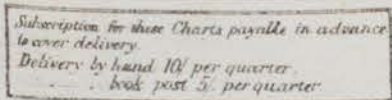 Subscription for these Charts payable in advance
to cover delivery.
Delivery by hand 10/ per quarter.
. . . book post 5/. per quarter.